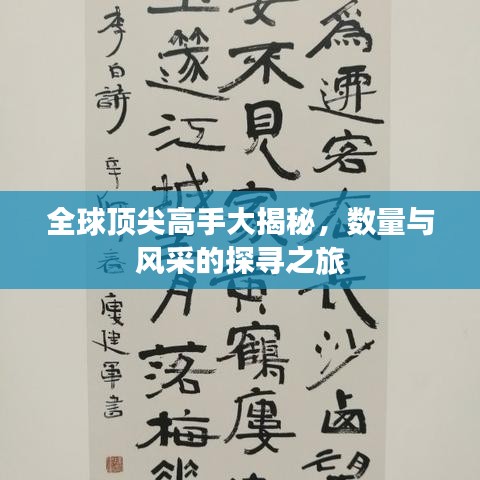 全球顶尖高手大揭秘,数量与
风采的探寻之旅
為遷客去長沙西望
安不見家黄鶴廔
玉篴江城五月落梅花
李白詩 辛 春 廔建軍書